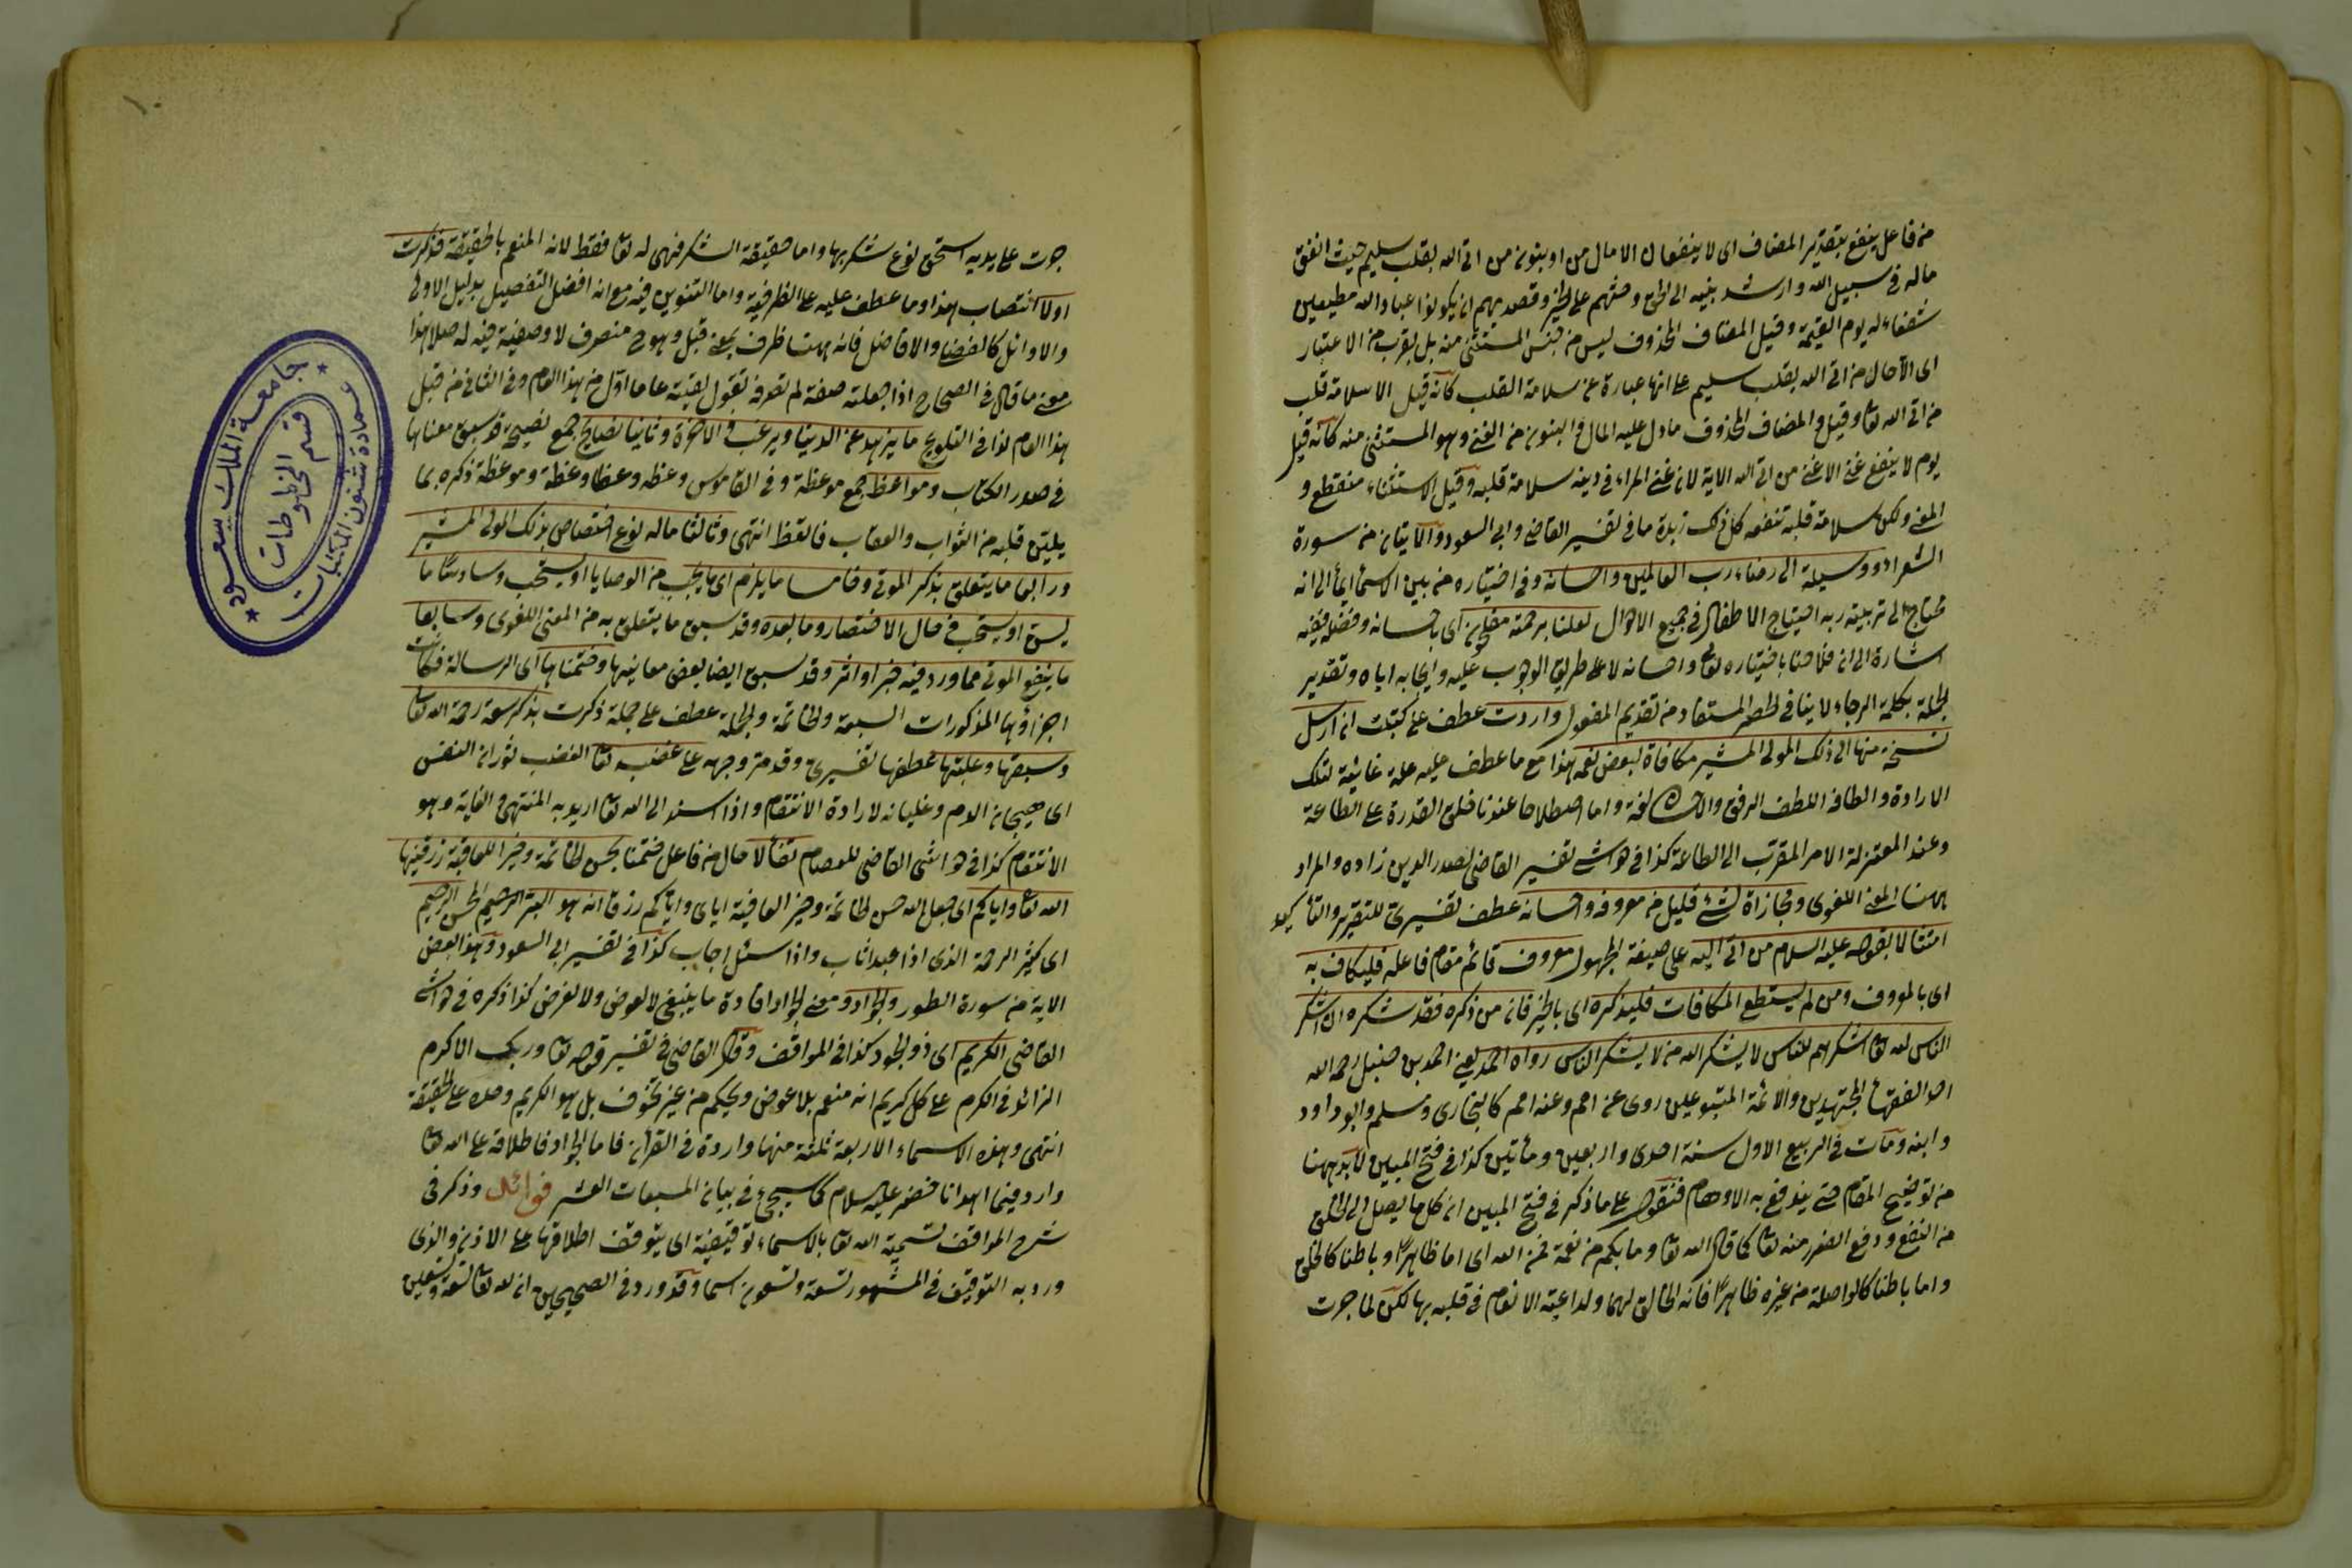 من فاعل ينفع بتقدير المضاف اى لا ينفعان الا مال من او بنون من اتى الله بقلب سليم حيث انفق
ماله فى سبيل الله وارشد بنيه الى الحق وحثهم على الخير وقصد بهم ان يكونوا عبادا لله مطيعين
شفعاء له يوم القيمة وقيل المضاف المحذوف ليس من جنس المستثنى منه بل بقرب من الاعتبار
اى الا حال من اتى الله بقلب سليم على انها عبارة عن سلامة القلب كانه قيل الا سلامة قلب
من اتى الله تعا وقيل والمضاف المحذوف ما دل عليه المال والبنون من الغنى وهو المستثنى منه كانه قيل
يوم لا ينفع غنى الا غنى من اتى الله الاية لان غنى المراء فى دينه سلامة قلبه وقيل الاستثناء منقطع و
المعنى ولكن سلامة قلبه تنفعه كل ذلك زبدة ما فى تفسير القاضى وابى السعود والآيتان من سورة
الشعراء ووسيلة الى رضاء رب العالمين واحسانه وفى اختياره من بين الاسماء ايماء الى انه
محتاج الى تربية ربه احتياج الاطفال فى جميع الاحوال لعلنا برحمته مفلحون اى باحسانه وفضله ففيه
اشارة الى ان فلاحنا باختياره تعا واحسانه لا على طريق الوجوب عليه وايجابه اياه وتقدير
الجملة بكلمة الرجاء لا ينافى الحصر المستفاد من تقديم المفعول واردت عطف على كتبت ان ارسل
نسخة منها الى ذلك المولى المشير مكافاة لبعض نعمه هذا مع ما عطف عليه علة غائية لتلك
الارادة والطافه اللطف الرفق والاحسان لغة واما اصطلاحا عندنا فخلق القدرة على الطاعة
وعند المعتزلة الامر المقرب الى الطاعة كذا فى حواشى تفسير القاضى لصدر الدين زاده والمراد
ههنا المعنى اللغوى ومجازاة لشئ قليل من معروفه واحسانه عطف تفسيرى للتقرير والتأكيد
امتثالا بقوله عليه السلام من اتى اليه على صيغة المجهول معروف قائم مقام فاعله فليكاف به
اى بالمعروف ومن لم يستطع المكافات فليذكره اى بالخير فان من ذكره فقد شكره ان اشكر
الناس لله تعا اشكرهم للناس لا يشكر الله من لا يشكر الناس رواه احمد يعنى احمد بن حنبل رحمه الله
احد الفقهاء المجتهدين والائمة المتبوعين روى عن امم وعنه امم كالبخارى ومسلم وابو داود
وابنه ومات فى الربيع الاول سنة احدى واربعين ومأتين كذا فى فتح المبين لا بد ههنا
من توضيح المقام حتى يندفع به الاوهام فنقول على ما ذكر فى فتح المبين ان كل ما يصل الى الخلق
من النفع ودفع الضرر منه تعا كما قال الله تعا وما بكم من نعمة فمن الله اى اما ظاهرا وباطنا كالخلق
واما باطنا كالواصلة من غيره ظاهرا فانه الخالق لهما ولداعية الانعام فى قلبه بها لكن لما جرت
جرت على يديه استحق نوع شكر بها واما حقيقة الشكر فهى له تعا فقط لانه المنعم بالحقيقة فذكرت
اولا انتصاب هذا وما عطف عليه على الظرفية واما التنوين فيه مع انه افضل التفضيل بدليل الاولى
والاوائل كالفضلى والافاضل فانه ههنا ظرف بمعنى قبل وهو ح منصرف لا وصفية فيه له صلا هذا
معنى ما قال فى الصحاح اذا جعلته صفة لم تصرفه تقول لقيته عاما اول من هذا العام وفى الثانى من قبل
هذا العام كذا فى التلويح ما يزهد عن الدنيا ويرغب فى الاخرة وثانيا نصايح جمع نصيحة قد سبق معناها
فى صدر الكتاب ومواعظ جمع موعظة وفى القاموس وعظه وعظا وعظة وموعظة ذكره بما
يلين قلبه من الثواب والعقاب فاتعظ انتهى وثالثا ماله نوع اختصاص بذلك المولى المشير
ورابعا ما يتعلق بذكر الموت وخامسا ما يلزم اى يجب من الوصايا او يستحب وسادسا ما
يسن او يستحب فى حال الاحتضار وما بعده وقد سبق ما يتعلق به من المعنى اللغوى وسابعا
ما ينفع الموتى مما ورد فيه خبر او اثر وقد سبق ايضا بعض معانيها وختمناها اى الرسالة فكانت
اجزاؤها المذكورات السبعة والخاتمة والجملة عطف على جملة ذكرت بذكر سعة رحمة الله تعا
وسبقها وغلبتها عطفها تفسيرى وقد مر وجهه على غضبه تعا الغضب ثوران النفس
اى هيجان الدم وغليانه لارادة الانتقام واذا اسند الى الله تعا اريد به المنتهى والغاية وهو
الانتقام كذا فى حواشى القاضى للعصام تفألا حال من فاعل ختمنا بحسن الخاتمة وخير العاقبة رزقنيها
الله تعا واياكم اى جعل الله حسن الخاتمة وخير العاقبة اياى واياكم رزقا انه هو البر الرحيم المحسن الرحيم
اى كثير الرحمة الذى اذا عبد اثاب واذا سئل اجاب كذا فى تفسير ابى السعود وهذا بعض
الاية من سورة الطور والجواد ومعنى الجواد افادة ما ينبغى لا لعوض ولا لغرض كذا ذكره فى حواشى
القاضى الكريم اى ذو الجود كذا فى المواقف وقال القاضى فى تفسير قوله تعا وربك الاكرم
الزائد فى الكرم على كل كريم انه منعم بلا عوض ويحكم من غير تخوف بل هو الكريم وحده على الحقيقة
انتهى وهذه الاسماء الاربعة ثلثة منها واردة فى القرآن فاما الجواد فاطلاقه على الله تعا
وارد فيما اهدانا خضر عليه السلام كما سيجئ فى بيان المسبعات العشر فوائد وذكر فى
شرح المواقف تسمية الله تعا بالاسماء توقيفية اى يتوقف اطلاقها على الاذن والذى
ورد به التوقيف فى المشهور تسعة وتسعون اسما وقد ورد فى الصحيحين ان لله تعا تسعة وتسعين
١٠
جامعة الملك سعود
عمادة شئون المكتبات
قسم المخطوطات